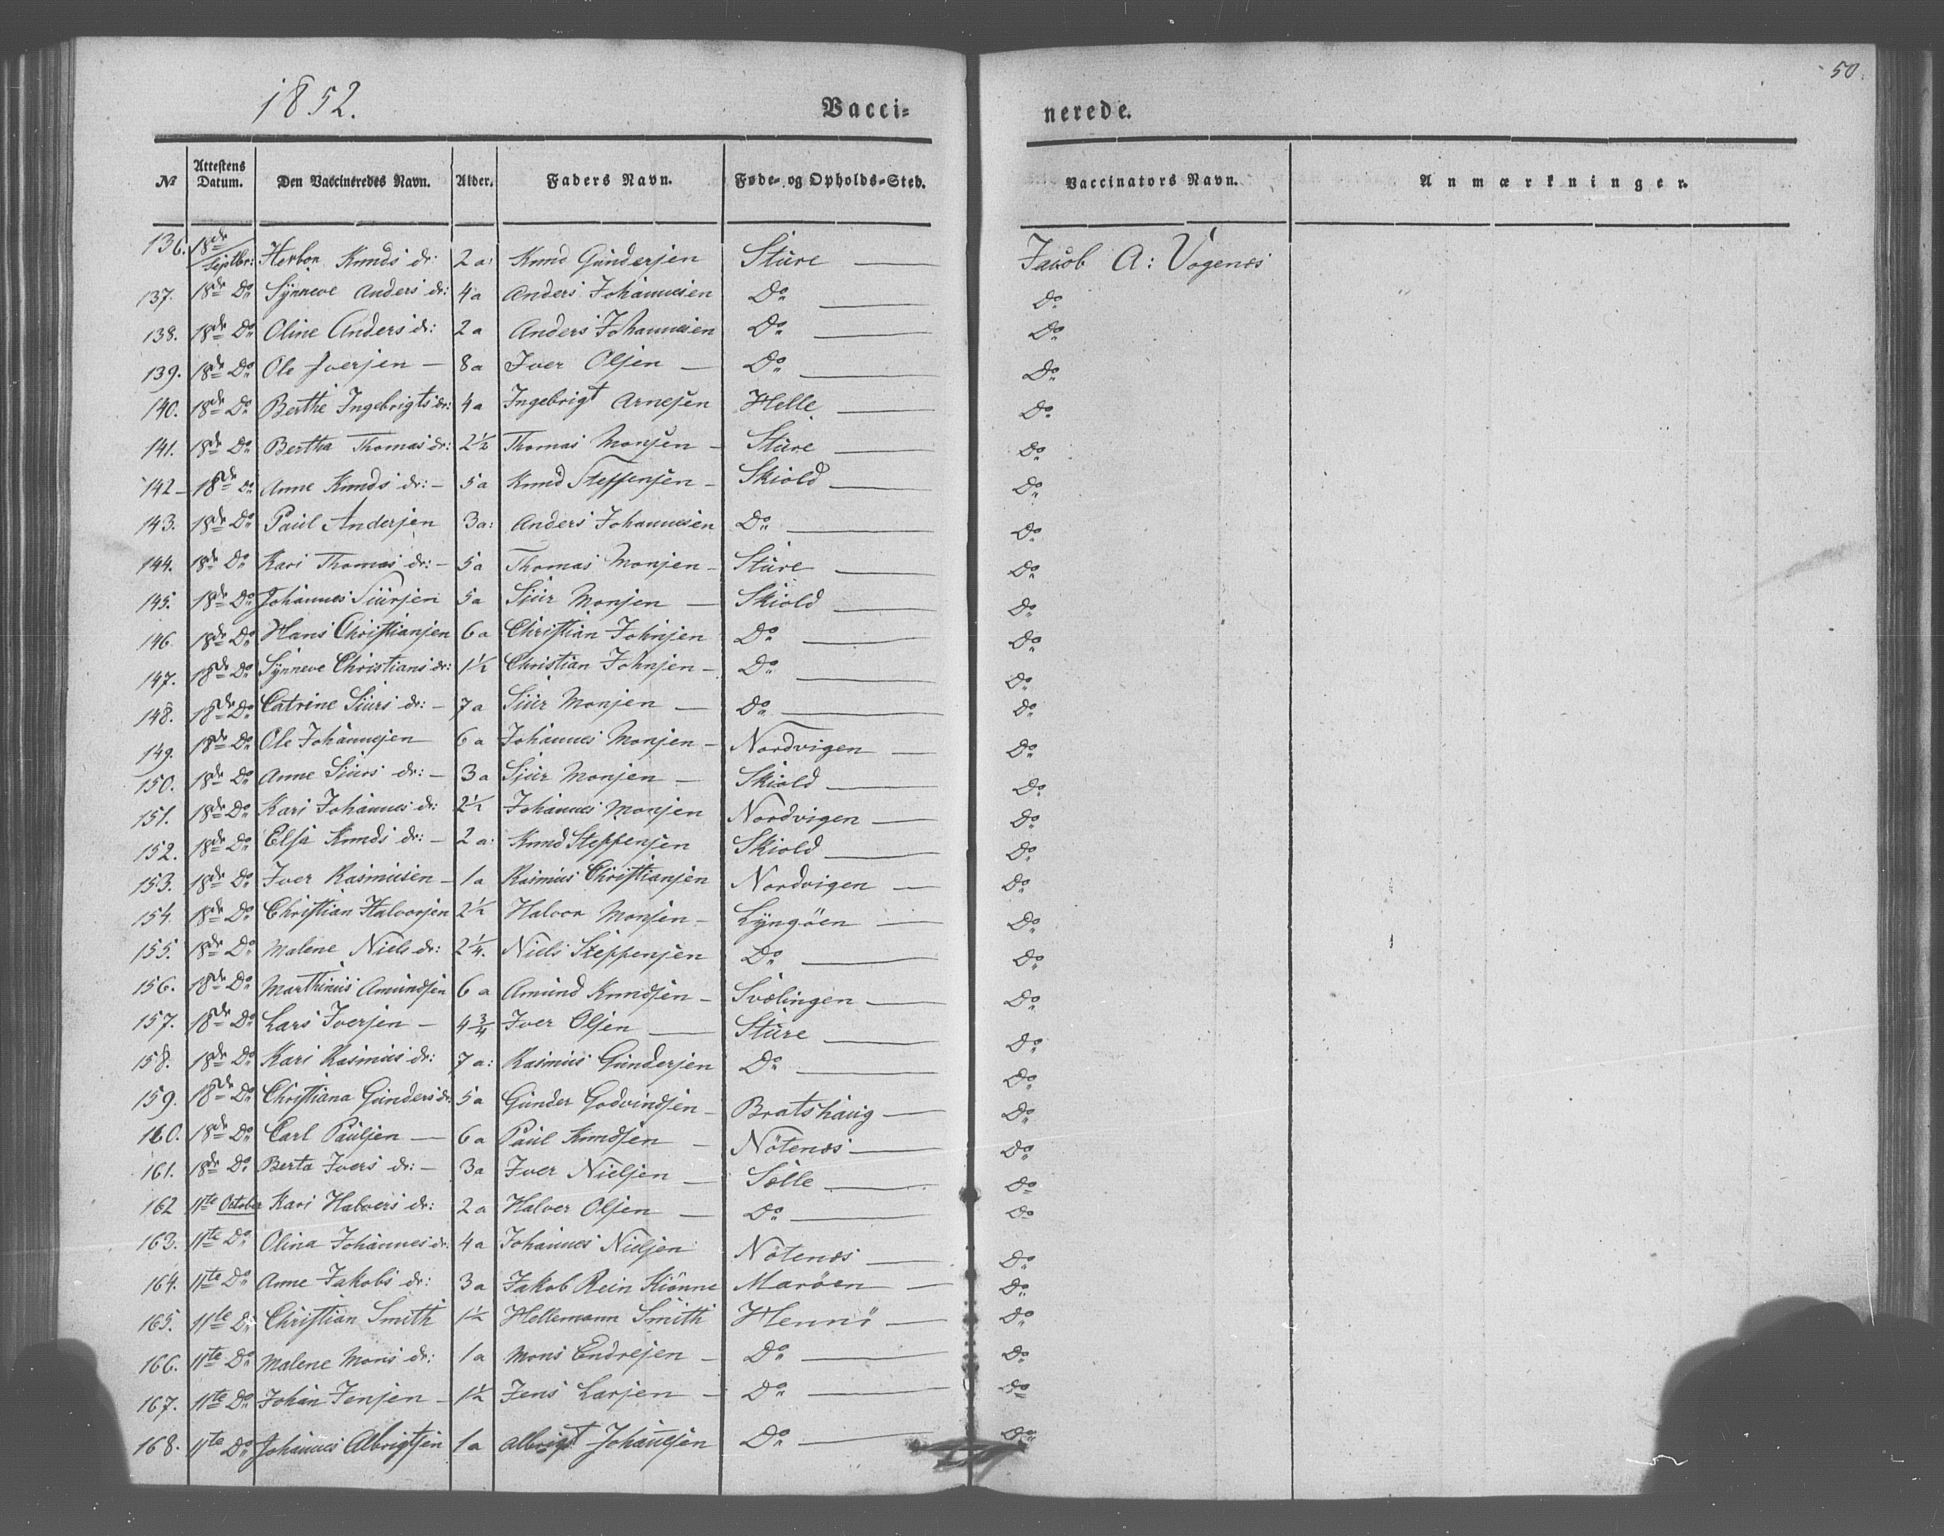 50.
1852.
Vacci=
nerede.
No Attestens Datum. Den Vaccineredes Navn. Alder. Faders Navn. Føde- og Opholds-Sted. Vaccinators Navn. Anmærkninger.
136. 18de Septbr: Herbor Knuds dr: 2 a: Knud Gundersen Sture Jacob A: Vogenæs
137. 18de Do Synneve Anders dr: 4 a Anders Johannesen Do Do
138. 18de Do Oline Anders dr: 2 a Anders Johannesen Do Do
139. 18de Do Ole Iversen 8 a Iver Olsen Do Do
140. 18de Do Berthe Ingebrigts dr: 4 a Ingebrigt Arnesen Helle Do
141. 18de Do Bertha Thomas dr: 2½ Thomas Monsen Sture Do
142 18de Do Anne Knuds dr: 5 a Knud Steffensen Skiold Do
143. 18de Do Paul Andersen 3 a: Anders Johannesen Do Do
144. 18de Do Kari Thomas dr: 5 a Thomas Monsen Sture Do
145. 18de Do Johannes Siursen 5 a Siur Monsen Skiold Do
146. 18de Do Hans Christiansen 6 a Christian Johnsen Do Do
147. 18de Do Synneve Christians dr: 1½ Christian Johnsen Do Do
148. 18de Do Catrine Siurs dr: 7 a Siur Monsen Do Do
149. 18de Do Ole Johannesen 6 a Johannes Monsen Nordvigen Do
150. 18de Do Anne Siurs dr: 3 a Siur Monsen Skiold Do
151. 18de Do Kari Johannes dr: 2½ Johannes Monsen Nordvigen Do
152. 18de Do Elsa Knuds dr: 2 a: Knud Steffensen Skiold Do
153. 18de Do Iver Rasmusen 1 a Rasmus Christiansen Nordvigen Do
154. 18de Do Christian Halvorsen 2½ Halvor Monsen Lyngöen Do
155. 18de Do Malene Niels dr: 2¼. Niels Steffensen Do Do
156. 18de Do Marthinus Amundsen 6 a Amund Knudsen Svælingen Do
157. 18de Do Lars Iversen 4¾ Iver Olsen Sture Do
158. 18de Do Kari Rasmus dr: 7 a: Rasmus Gundersen Do Do
159. 18de Do Christiana Gunders dr: 5 a Gunder Godvindsen Bratshaug Do
160. 18de Do Carl Paulsen 6 a Paul Knudsen Nötenæs Do
161. 18de Do Berta Ivers dr: 3 a Iver Nielsen Sælle Do
162 11te October Kari Halvers dr: 2 a Halver Olsen Do Do
163. 11te Do Olina Johannes dr: 4 a Johannes Nielsen Nötenæs Do
164. 11te Do Anne Jakobs dr: 3 a Jakob Rein Kiönne Maröen Do
165. 11te Do Christian Smith 1½ Hellemann Smith Hennö Do
166. 11te Do Malene Mons dr: 1 a Mons Endresen Do Do
167. 11te Do Johan Jensen 1½ Jens Larsen Do Do
168. 11te Do Johannes Albrigtsen 1 a Albrigt Johansen Do Do